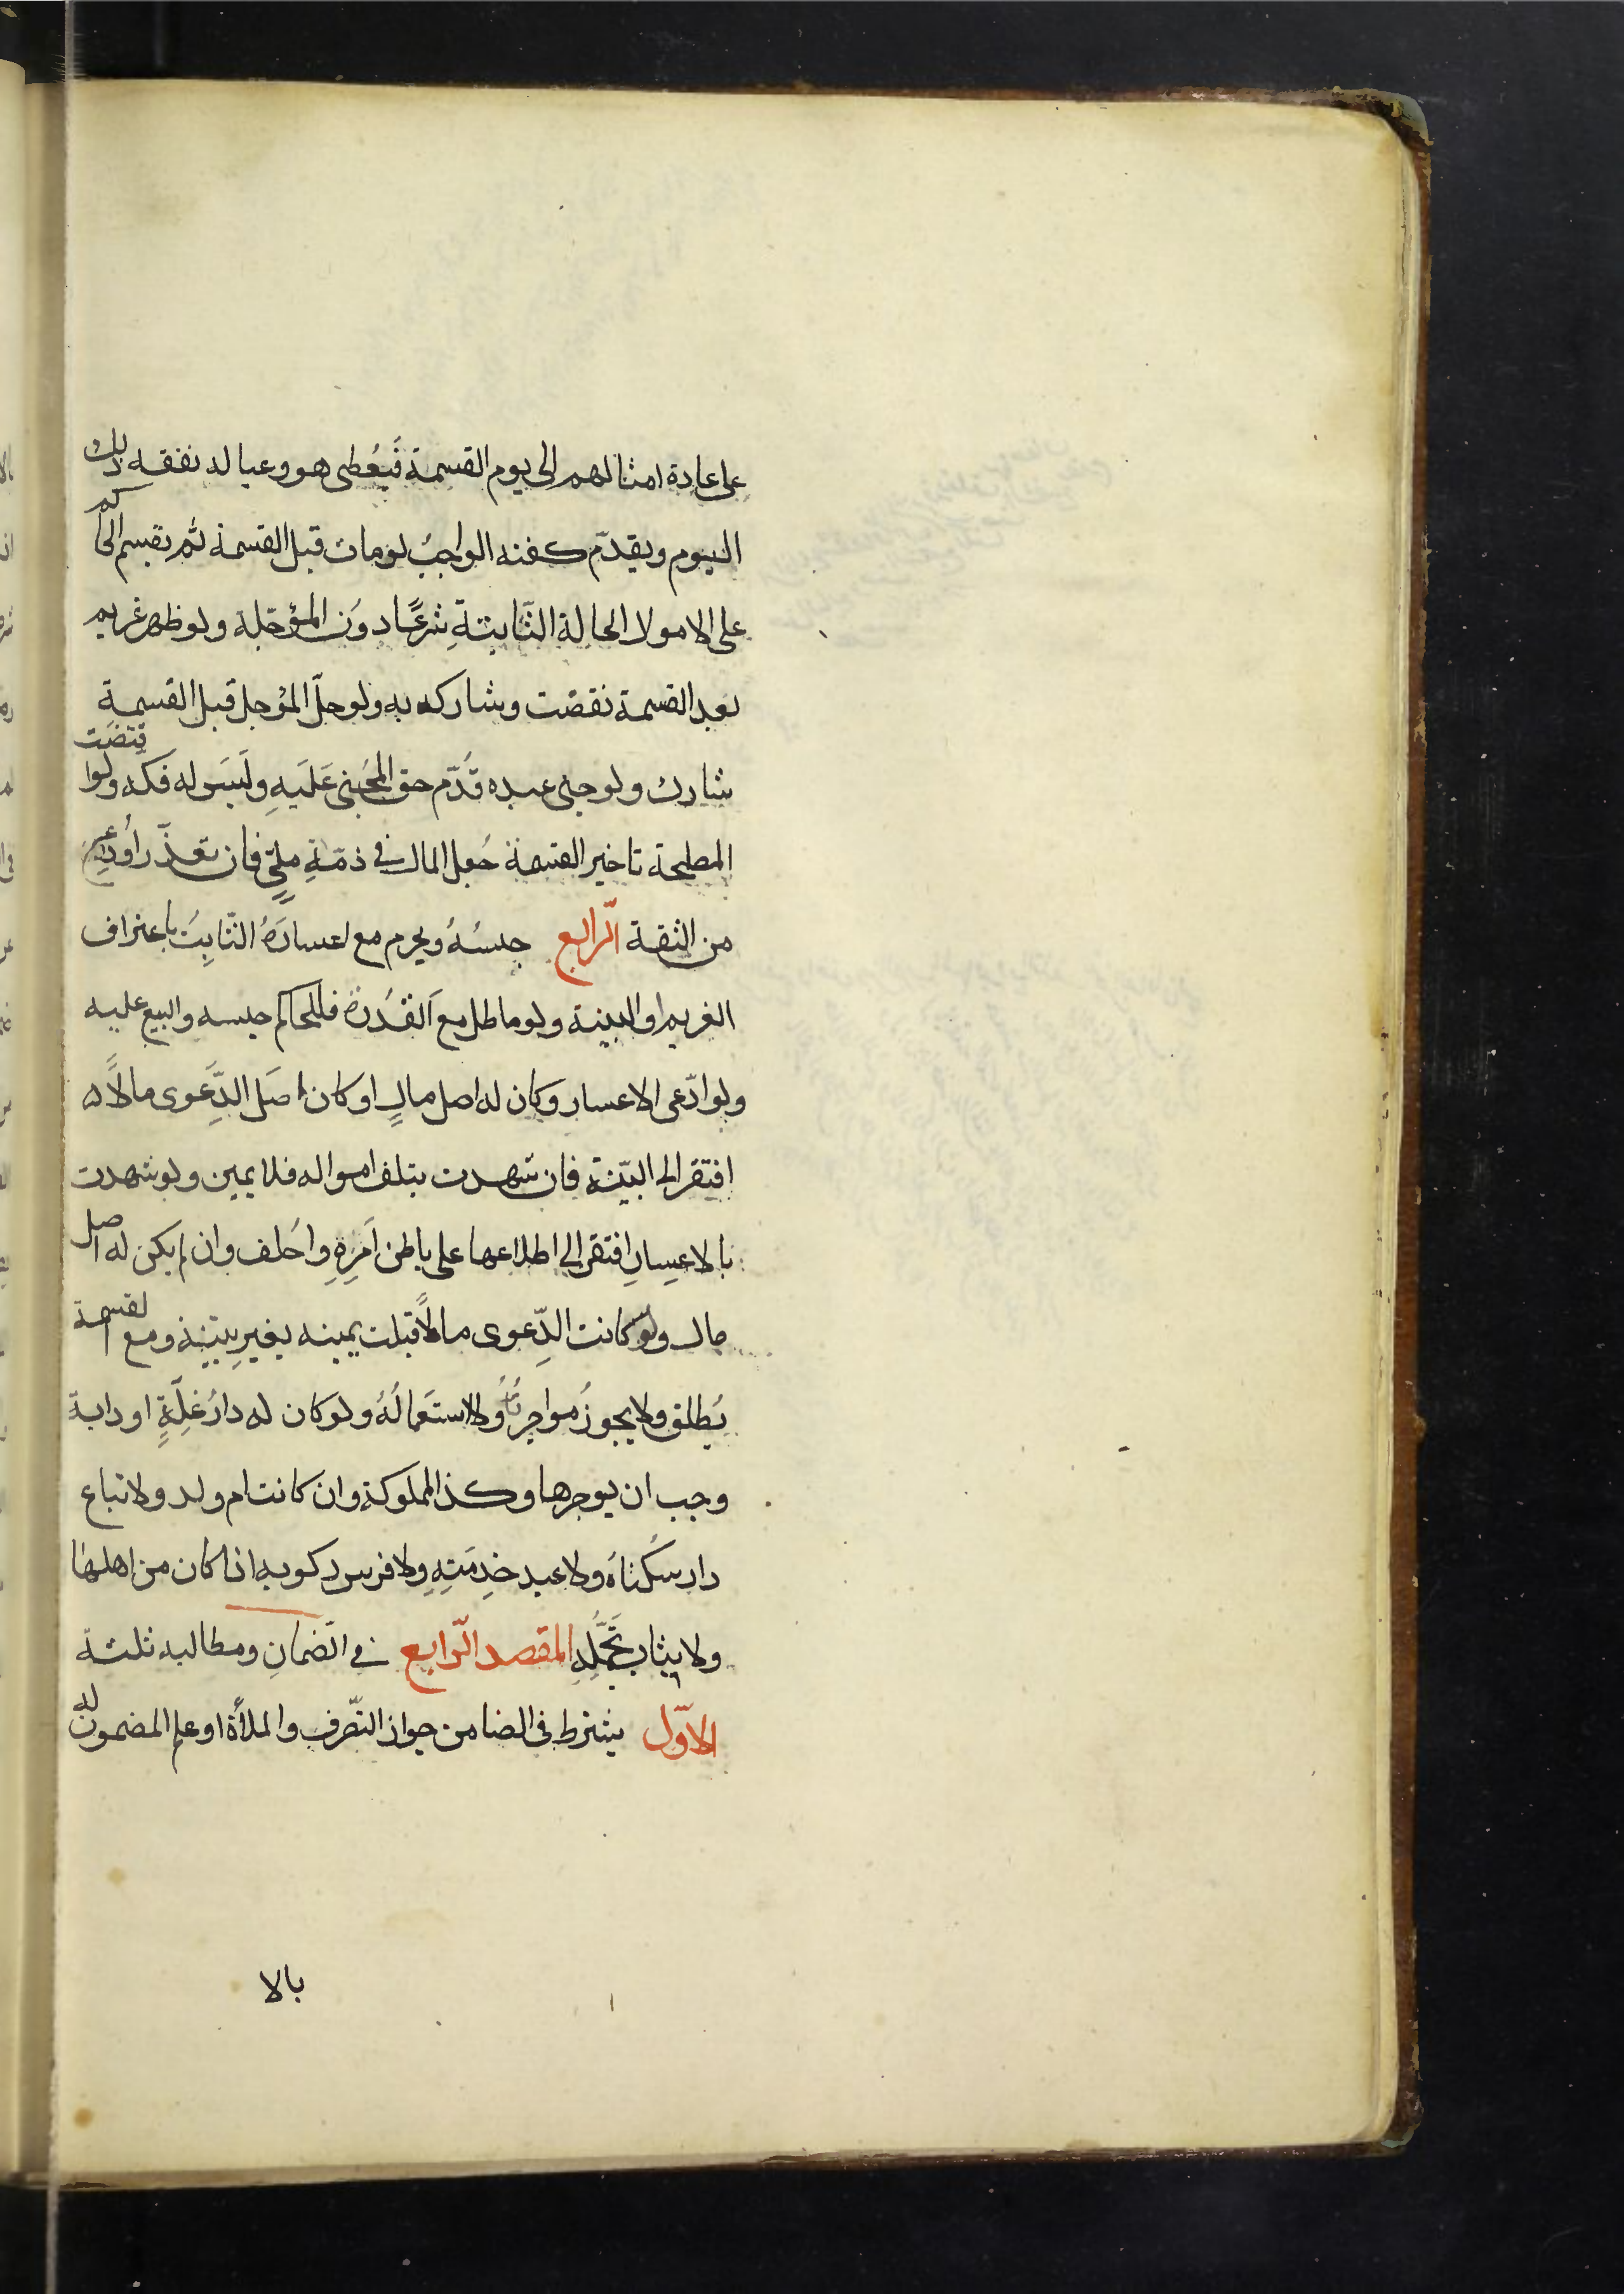 على عادة امثالهم الى يوم القسمة فيُعطى هو وعياله نفقه ذلك
اليوم ويقدّم كفنه الواجبُ لو مات قبل القسمة ثم يقسم الحاكم
على الامولا الحالة الثّابتةِ شرعًا دوَن المؤجّلة ولو ظهر غريم
بعد القسمة نقضت وشاركه به ولو حلّ المؤجل قبل القسمةِ
شارك ولو جنى عبده قُدّم حق المجَنى عَلَيهِ ولَيسَ له فكه ولو اقتضَت
المصلحة تاخير القسمة جُعل المال في ذمّةِ مليّ فان تعذّر اُودِع
من الثقة الّرابع حبسُهُ ويحرم مع اعسارَهُ الثّابِتُ باعتراف
الغريم او البينة ولو ماطل مع اَلقُدرة فللحاكم حبسه والبيع عليه
ولو ادّعى الاعسار وكان له اصل مالٍ او كان اصَل الدِّعَوى مالاً
افتقر الى البيّنة فان شهدت بتلف امواله فلا يمين ولو شهدت
بالاعِسارِ افتقر الى اطلاعها على باطن اَمَرِهِ واحَلف وان لم يكن له اصل
مال ولو كانت الدِّعوى مالاً قبلت يمينه بغيرِ بيّنة ومع القسمة
يُطلق ولا يجوزُ مواجرتُهُ ولا استَعمالُهُ ولو كان له دارُ غلّةٍ او دابة
وجب ان يوجرها وكذا المملوكة وان كانت ام ولد ولا تباع
دار سُكناهُ ولا عبد خدِمَتِهِ ولا فرس ركوبه اذا كان من اهلها
ولا ثياب تجَمّلُهِ المقصد الّرابع في الضّمانِ ومطالبه ثلثة
الاوّل يشترط في الضامن جواز التصّرف والملأة او علم المضمون له
بالا